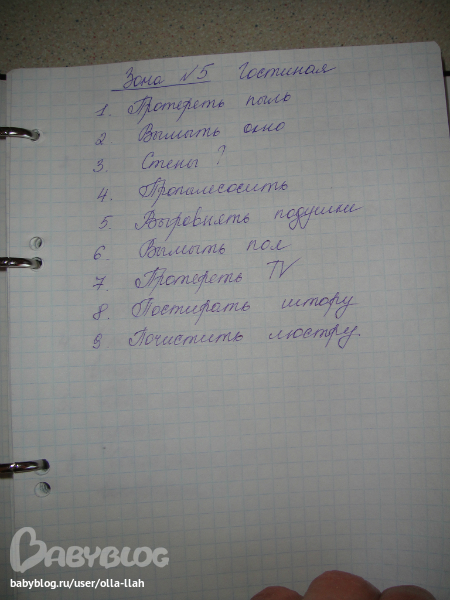 Зона №5 Гостиная
1. Протереть пыль
2 Вымыть окно
3 Стены ?
4. Пропылесосить
5. Выровнять подушки
6. Вымыть пол
7. Протереть TV
8. Постирать штору
9 Почистить люстру.
BABYBLOG
babyblog.ru/user/olla-llah